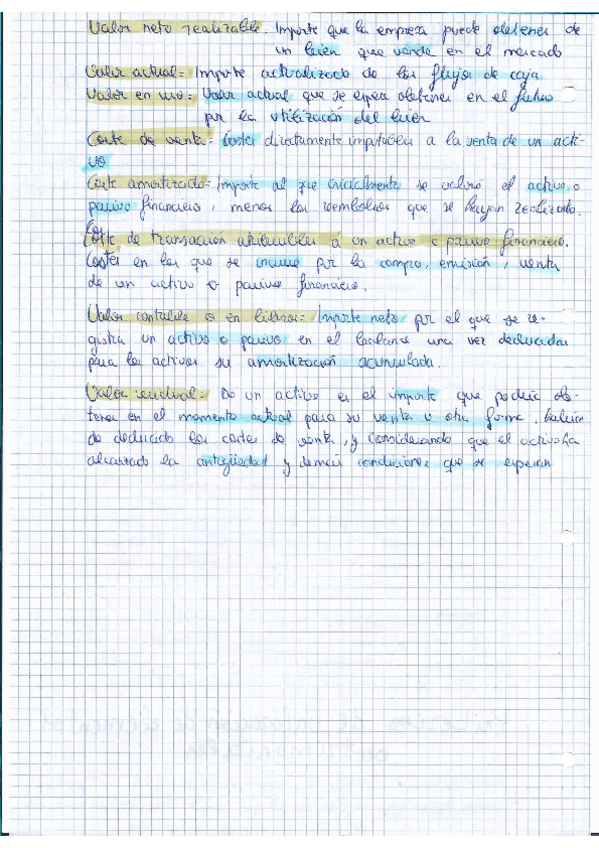 Valor neto realizable. Importe que la empresa puede obtener de
un bien que vende en el mercado
Valor actual = Importe actualizado de los flujos de caja
Valor en uso: Valor actual que se espera obtener en el futuro
por la utilización del bien
Coste de venta = Costes directamente imputables a la venta de un acti-
vo
Coste amortizado = Importe al que inicialmente se valoró el activo o
pasivo financiero, menos los reembolsos que se hayan realizado.
Coste de transación atribuibles a un activo o pasivo financiero.
Costes en los que se incurre por la compra, emisión, venta
de un activo o pasivo financiero.
Valor contable o en libros = Importe neto por el que se re-
gistra un activo o pasivo en el balance una vez deducidas
para los activos su amortización acumulada.
Valor residual = De un activo es el importe que podría ob-
tener en el momento actual para su venta u otra forma, habien
do deducido los costes de venta, y considerando que el activo ha
alcanzado la antigüedad y demás condiciones que se esperan